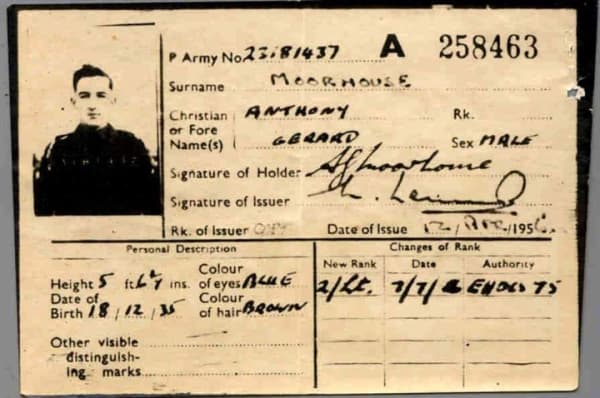 P Army No. 23181437 A 258463
Surname MOORHOUSE
Christian ANTHONY Rk.
or Fore
Name(s) GERARD Sex MALE
Signature of Holder AGMoorhouse
Signature of Issuer
Rk. of Issuer Date of Issue 12 / /1956
Personal Description
Height 5 ft. ins.
Colour
of eyes BLUE
Date of
Birth 18/12/35
Colour
of hair BROWN
Other visible
distinguish-
ing marks
Changes of Rank
New Rank Date Authority
2/Lt. 7/7/ 75